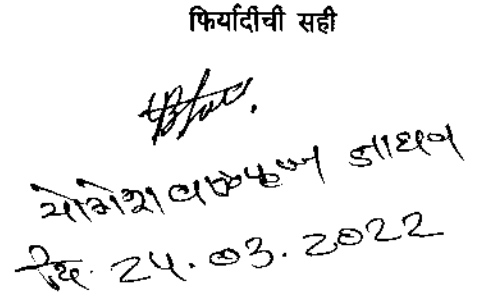 फिर्यादींची सही
योगेश बाळकृष्ण जाधव
दि. 24.03.2022